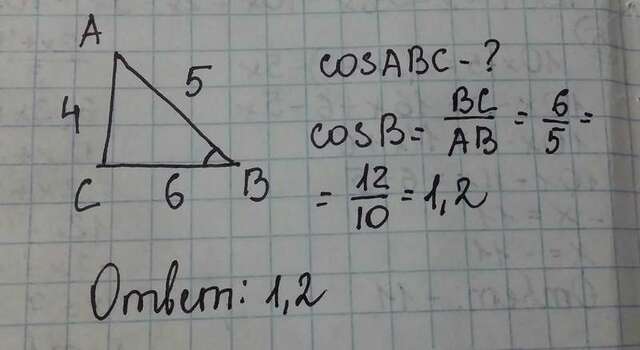 A
5
4
C
6
B
cosABC-?
cosB = BC/AB = 6/5 =
= 12/10 = 1,2
Ответ: 1,2